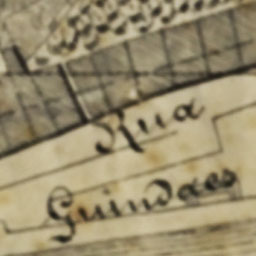 Rua
Guindaes